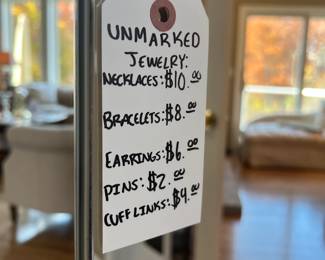 UNMARKED
JEWELRY:
NECKLACES: $10.00
BRACELETS: $8.00
EARRINGS: $6.00
PINS: $2.00
CUFFLINKS: $4.00